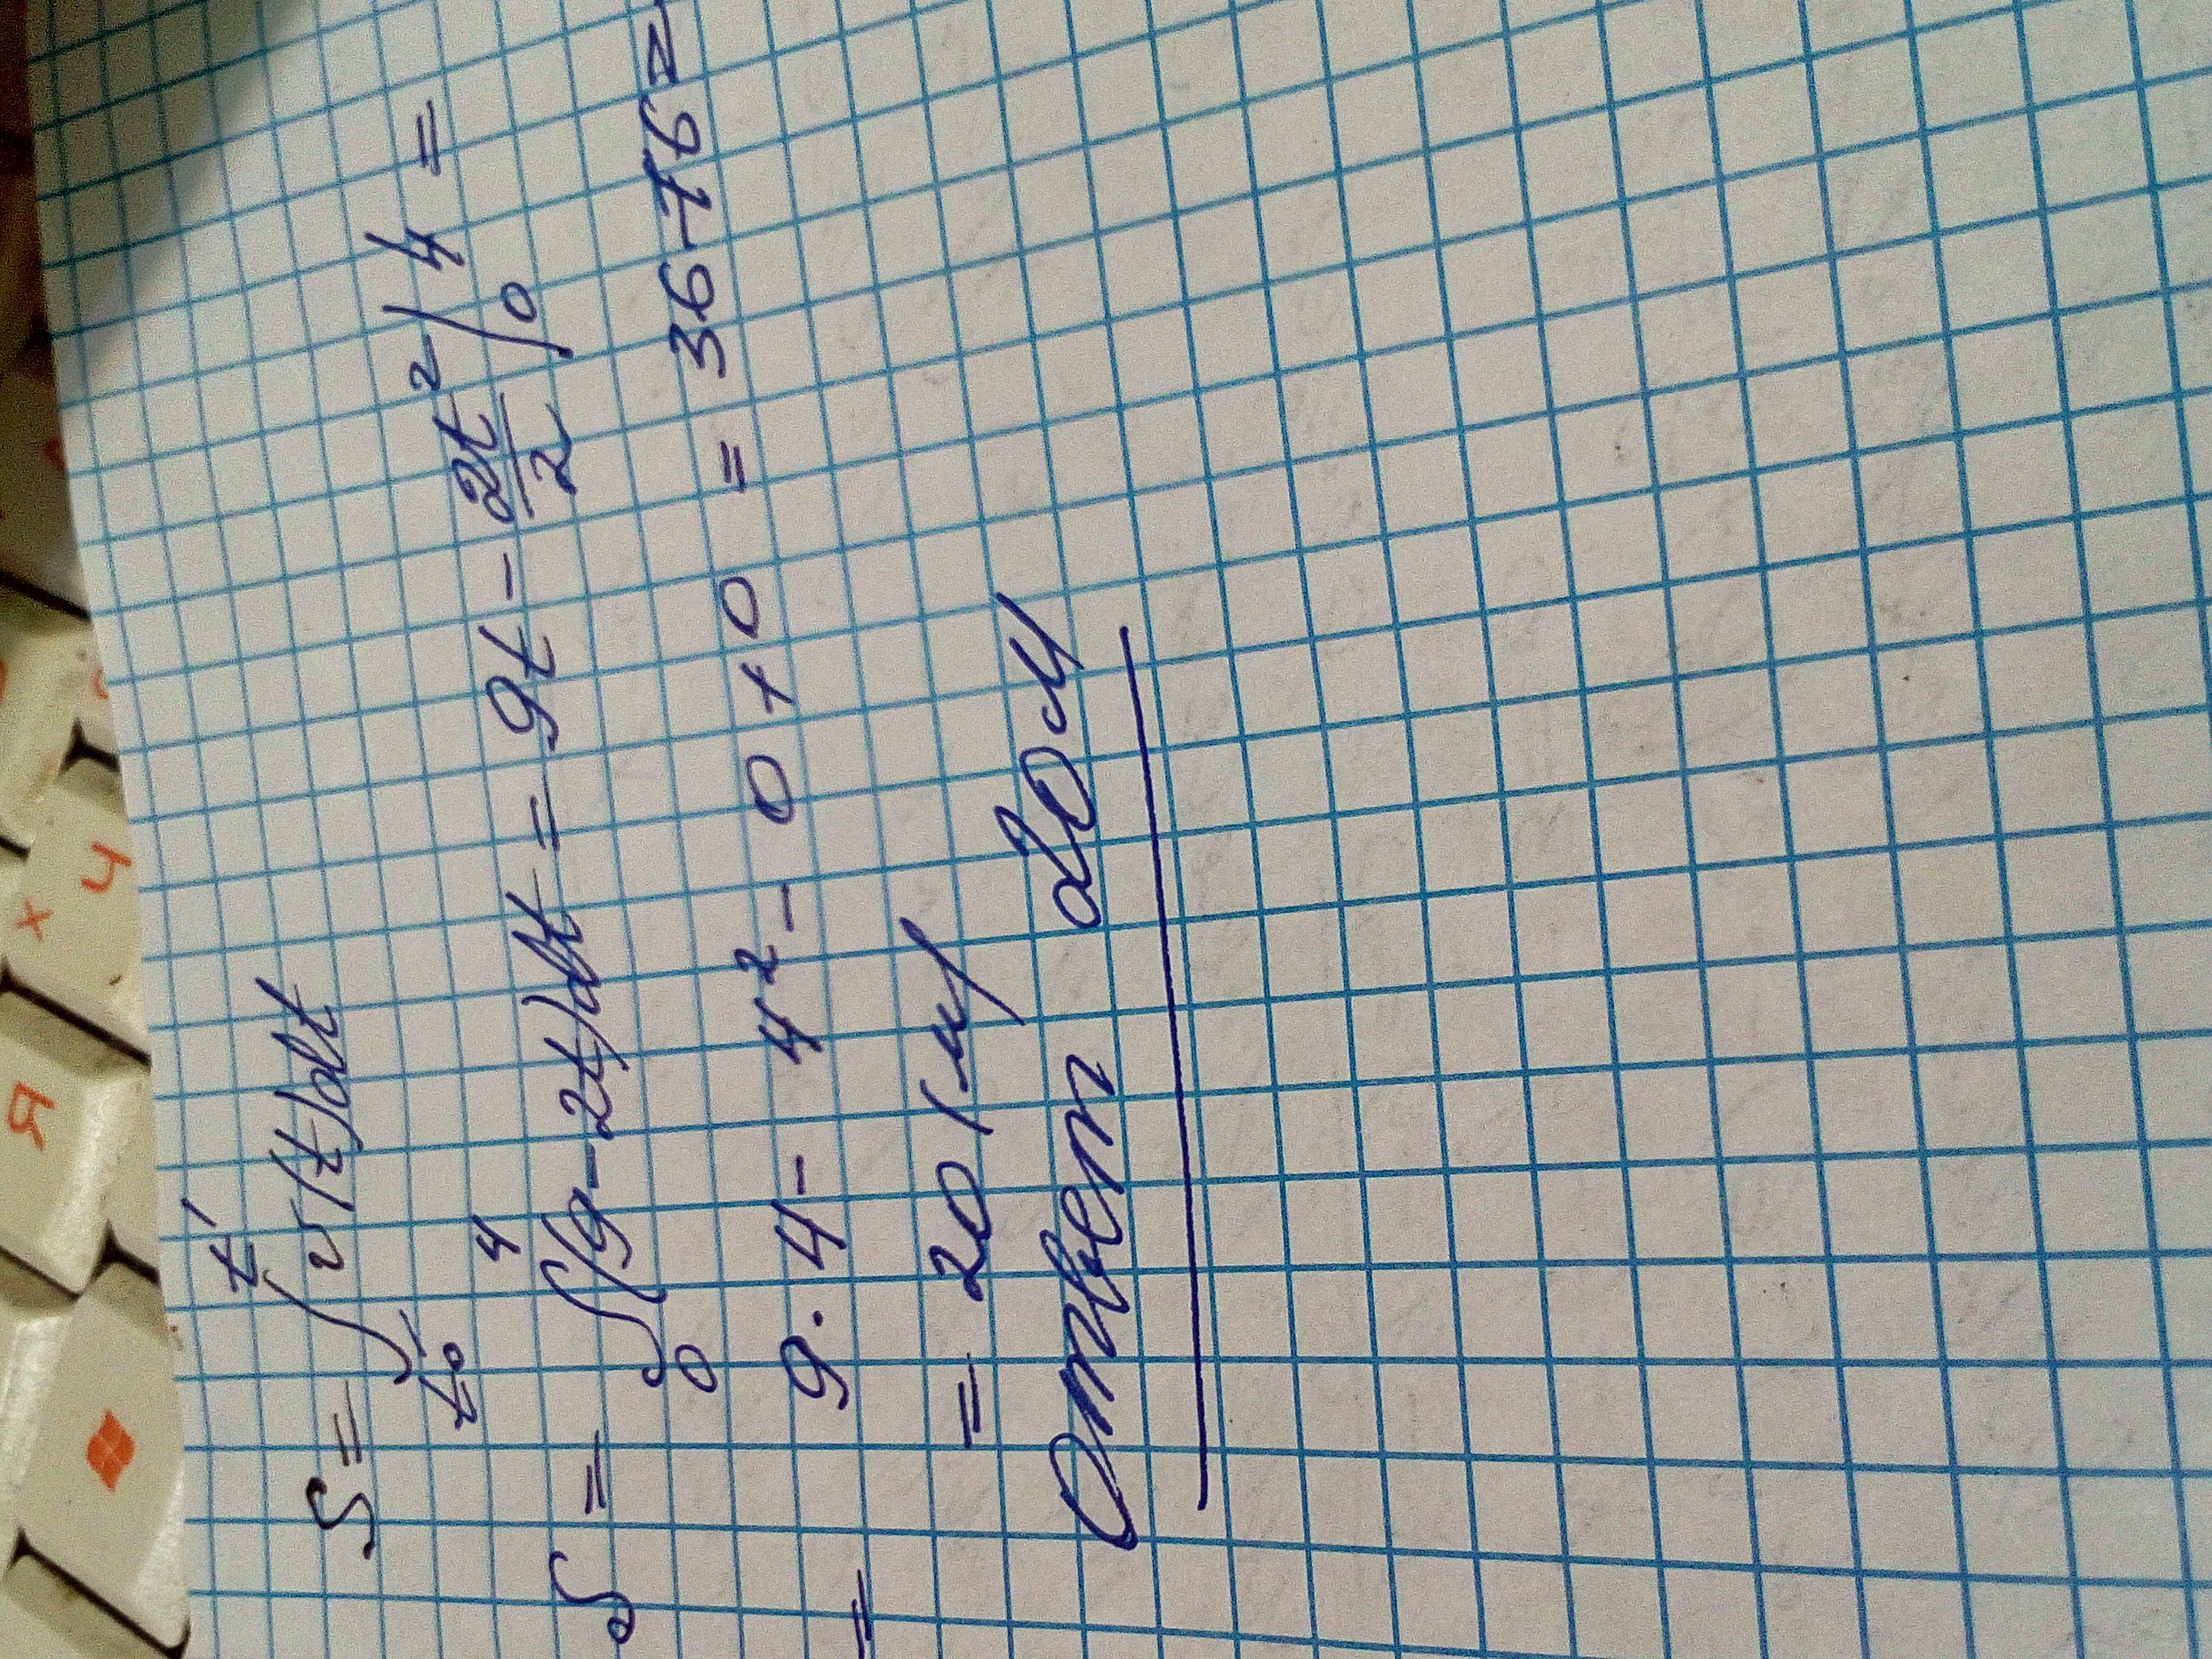 S = ∫ₜ₀ᵗ' v(t)dt
S = ∫₀⁴ (9-2t)dt = 9t - 2t²/2 /₀⁴ =
= 9·4 - 4² - 0 + 0 = 36-16 =
= 20 (м)
Ответ 20м
Я
х Ч